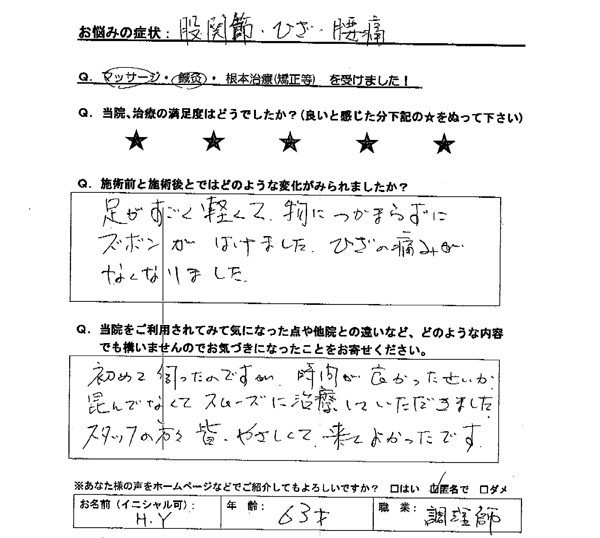 お悩みの症状：股関節・ひざ・腰痛
Q．マッサージ・鍼灸・根本治療(矯正等)　を受けました！
Q．当院、治療の満足度はどうでしたか？(良いと感じた分下記の☆をぬって下さい)
★　★　★　★　★
Q．施術前と施術後とではどのような変化がみられましたか？
足がすごく軽くて、物につかまらずに
ズボンがはけました。ひざの痛みが
なくなりました。
Q．当院をご利用されてみて気になった点や他院との違いなど、どのような内容
でも構いませんのでお気づきになったことをお寄せください。
初めて伺ったのですが、時間が良かったせいか
混んでなくてスムーズに治療していただきました
スタッフの方々皆、やさしくて、来てよかったです。
※あなた様の声をホームページなどでご紹介してもよろしいですか？　□はい　☑匿名で　□ダメ
お名前（イニシャル可）：　年　齢：　職　業：
H.Y　63才　調理師